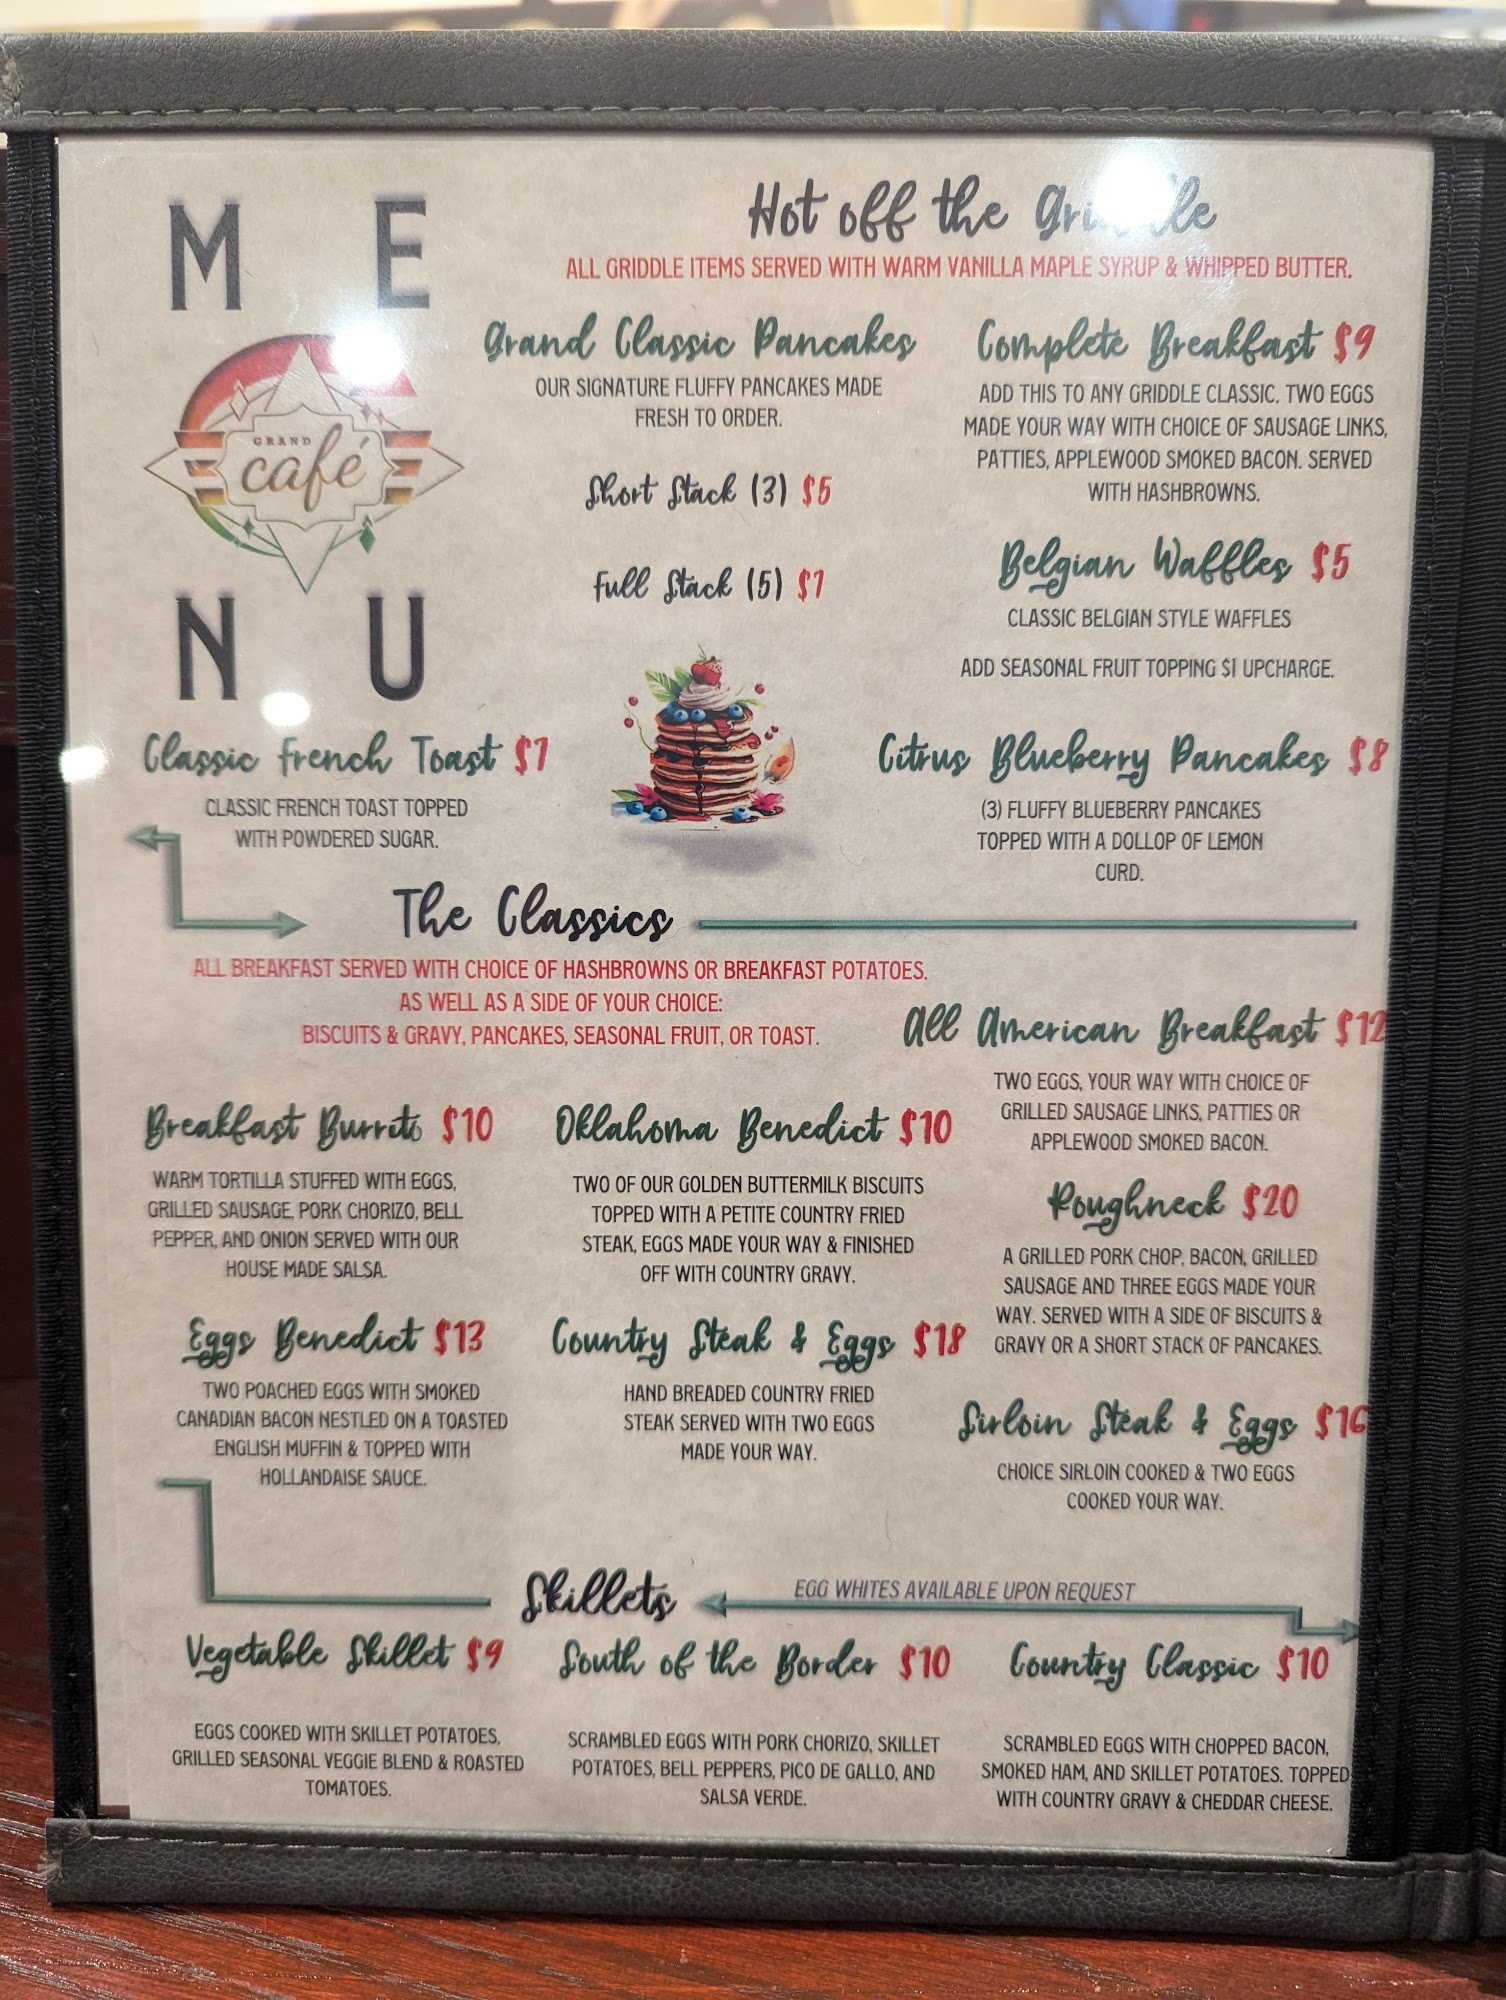 M E
GRAND
café
N U
Hot off the Griddle
ALL GRIDDLE ITEMS SERVED WITH WARM VANILLA MAPLE SYRUP & WHIPPED BUTTER.
Grand Classic Pancakes
OUR SIGNATURE FLUFFY PANCAKES MADE
FRESH TO ORDER.
Short Stack (3) $5
Full Stack (5) $7
Complete Breakfast $9
ADD THIS TO ANY GRIDDLE CLASSIC. TWO EGGS
MADE YOUR WAY WITH CHOICE OF SAUSAGE LINKS,
PATTIES, APPLEWOOD SMOKED BACON. SERVED
WITH HASHBROWNS.
Belgian Waffles $5
CLASSIC BELGIAN STYLE WAFFLES
ADD SEASONAL FRUIT TOPPING $1 UPCHARGE.
Classic French Toast $7
CLASSIC FRENCH TOAST TOPPED
WITH POWDERED SUGAR.
Citrus Blueberry Pancakes $8
(3) FLUFFY BLUEBERRY PANCAKES
TOPPED WITH A DOLLOP OF LEMON
CURD.
The Classics
ALL BREAKFAST SERVED WITH CHOICE OF HASHBROWNS OR BREAKFAST POTATOES.
AS WELL AS A SIDE OF YOUR CHOICE:
BISCUITS & GRAVY, PANCAKES, SEASONAL FRUIT, OR TOAST.
Breakfast Burrito $10
WARM TORTILLA STUFFED WITH EGGS,
GRILLED SAUSAGE, PORK CHORIZO, BELL
PEPPER, AND ONION SERVED WITH OUR
HOUSE MADE SALSA.
Oklahoma Benedict $10
TWO OF OUR GOLDEN BUTTERMILK BISCUITS
TOPPED WITH A PETITE COUNTRY FRIED
STEAK, EGGS MADE YOUR WAY & FINISHED
OFF WITH COUNTRY GRAVY.
All American Breakfast $12
TWO EGGS, YOUR WAY WITH CHOICE OF
GRILLED SAUSAGE LINKS, PATTIES OR
APPLEWOOD SMOKED BACON.
Roughneck $20
A GRILLED PORK CHOP, BACON, GRILLED
SAUSAGE AND THREE EGGS MADE YOUR
WAY. SERVED WITH A SIDE OF BISCUITS &
GRAVY OR A SHORT STACK OF PANCAKES.
Eggs Benedict $13
TWO POACHED EGGS WITH SMOKED
CANADIAN BACON NESTLED ON A TOASTED
ENGLISH MUFFIN & TOPPED WITH
HOLLANDAISE SAUCE.
Country Steak & Eggs $18
HAND BREADED COUNTRY FRIED
STEAK SERVED WITH TWO EGGS
MADE YOUR WAY.
Sirloin Steak & Eggs $16
CHOICE SIRLOIN COOKED & TWO EGGS
COOKED YOUR WAY.
Skillets
EGG WHITES AVAILABLE UPON REQUEST
Vegetable Skillet $9
EGGS COOKED WITH SKILLET POTATOES,
GRILLED SEASONAL VEGGIE BLEND & ROASTED
TOMATOES.
South of the Border $10
SCRAMBLED EGGS WITH PORK CHORIZO, SKILLET
POTATOES, BELL PEPPERS, PICO DE GALLO, AND
SALSA VERDE.
Country Classic $10
SCRAMBLED EGGS WITH CHOPPED BACON,
SMOKED HAM, AND SKILLET POTATOES. TOPPED
WITH COUNTRY GRAVY & CHEDDAR CHEESE.